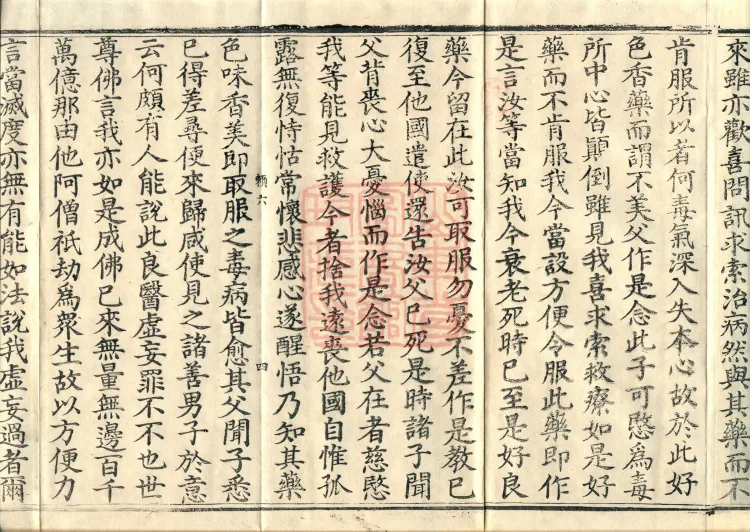 來雖亦歡喜問訊求索治病然與其藥而不
肯服所以者何毒氣深入失本心故於此好
色香藥而謂不美父作是念此子可愍爲毒
所中心皆顛倒雖見我喜求索救療如是好
藥而不肯服我今當設方便令服此藥即作
是言汝等當知我今衰老死時已至是好良
藥今留在此汝可取服勿憂不差作是教已
復至他國遣使還告汝父已死是時諸子聞
父背喪心大憂惱而作是念若父在者慈愍
我等能見救護今者捨我遠喪他國自惟孤
露無復恃怙常懷悲感心遂醒悟乃知其藥
六 四
色味香美即取服之毒病皆愈其父聞子悉
已得差尋便來歸咸使見之諸善男子於意
云何頗有人能說此良醫虛妄罪不不也世
尊佛言我亦如是成佛已來無量無邊百千
萬億那由他阿僧祇劫爲衆生故以方便力
言當滅度亦無有能如法說我虛妄過者爾